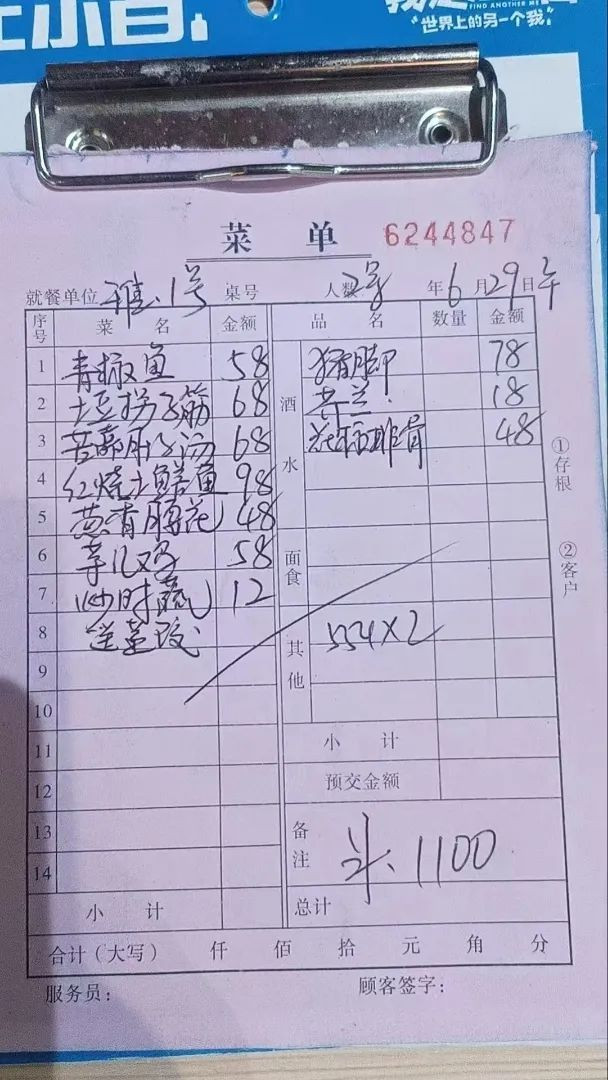 FIND ANOTHER ME
世界上的另一个我
菜 单 6244847
就餐单位 雅1号 桌号 人数 2号 年6月29日午
序号 菜 名 金额 品 名 数量 金额
1 青椒鱼 58 猪脚 78
2 土豆拐子筋 68 酒水 18
3 68 排骨 48
4 红烧土鳝鱼 98
5 葱香腰花 48
6 58 面食
7 炒时蔬 12
8 其他 554×2
9
10
11 小 计
12 预交金额
13 备注 斗、1100
14
小 计 总计
合计(大写) 仟 佰 拾 元 角 分
服务员: 顾客签字:
①存根
②客户